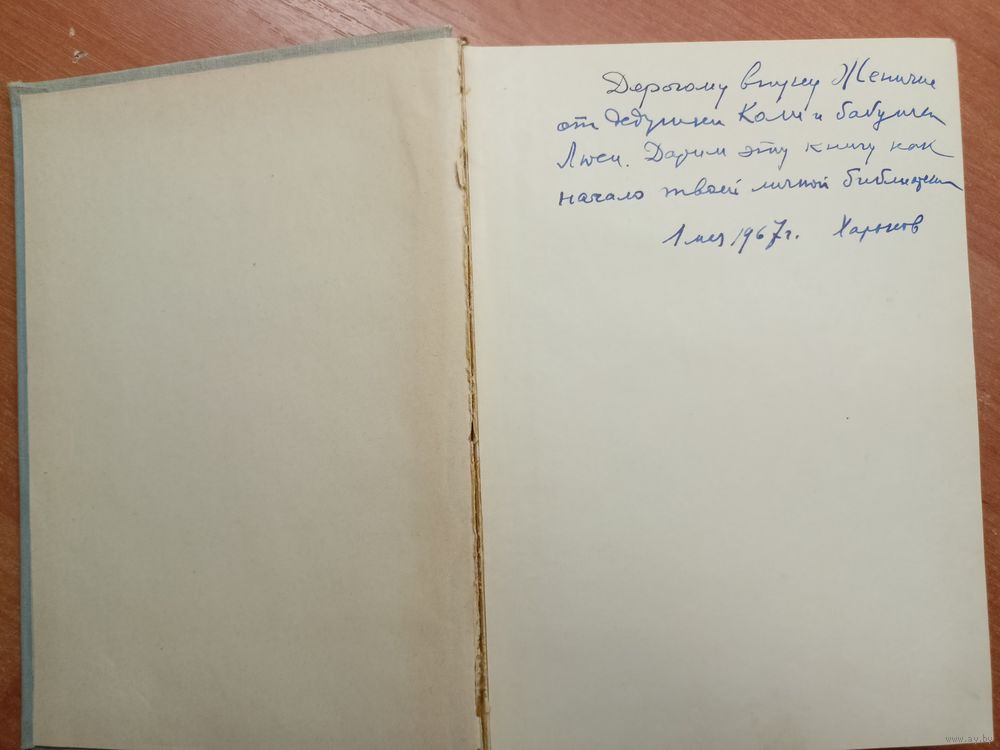 Дорогому внуку Женичке
от дедушки Коли и бабушки
Люси. Дарим эту книгу как
начало твоей личной библиотеки
1 мая 1967 г. Харьков
www.ay.by